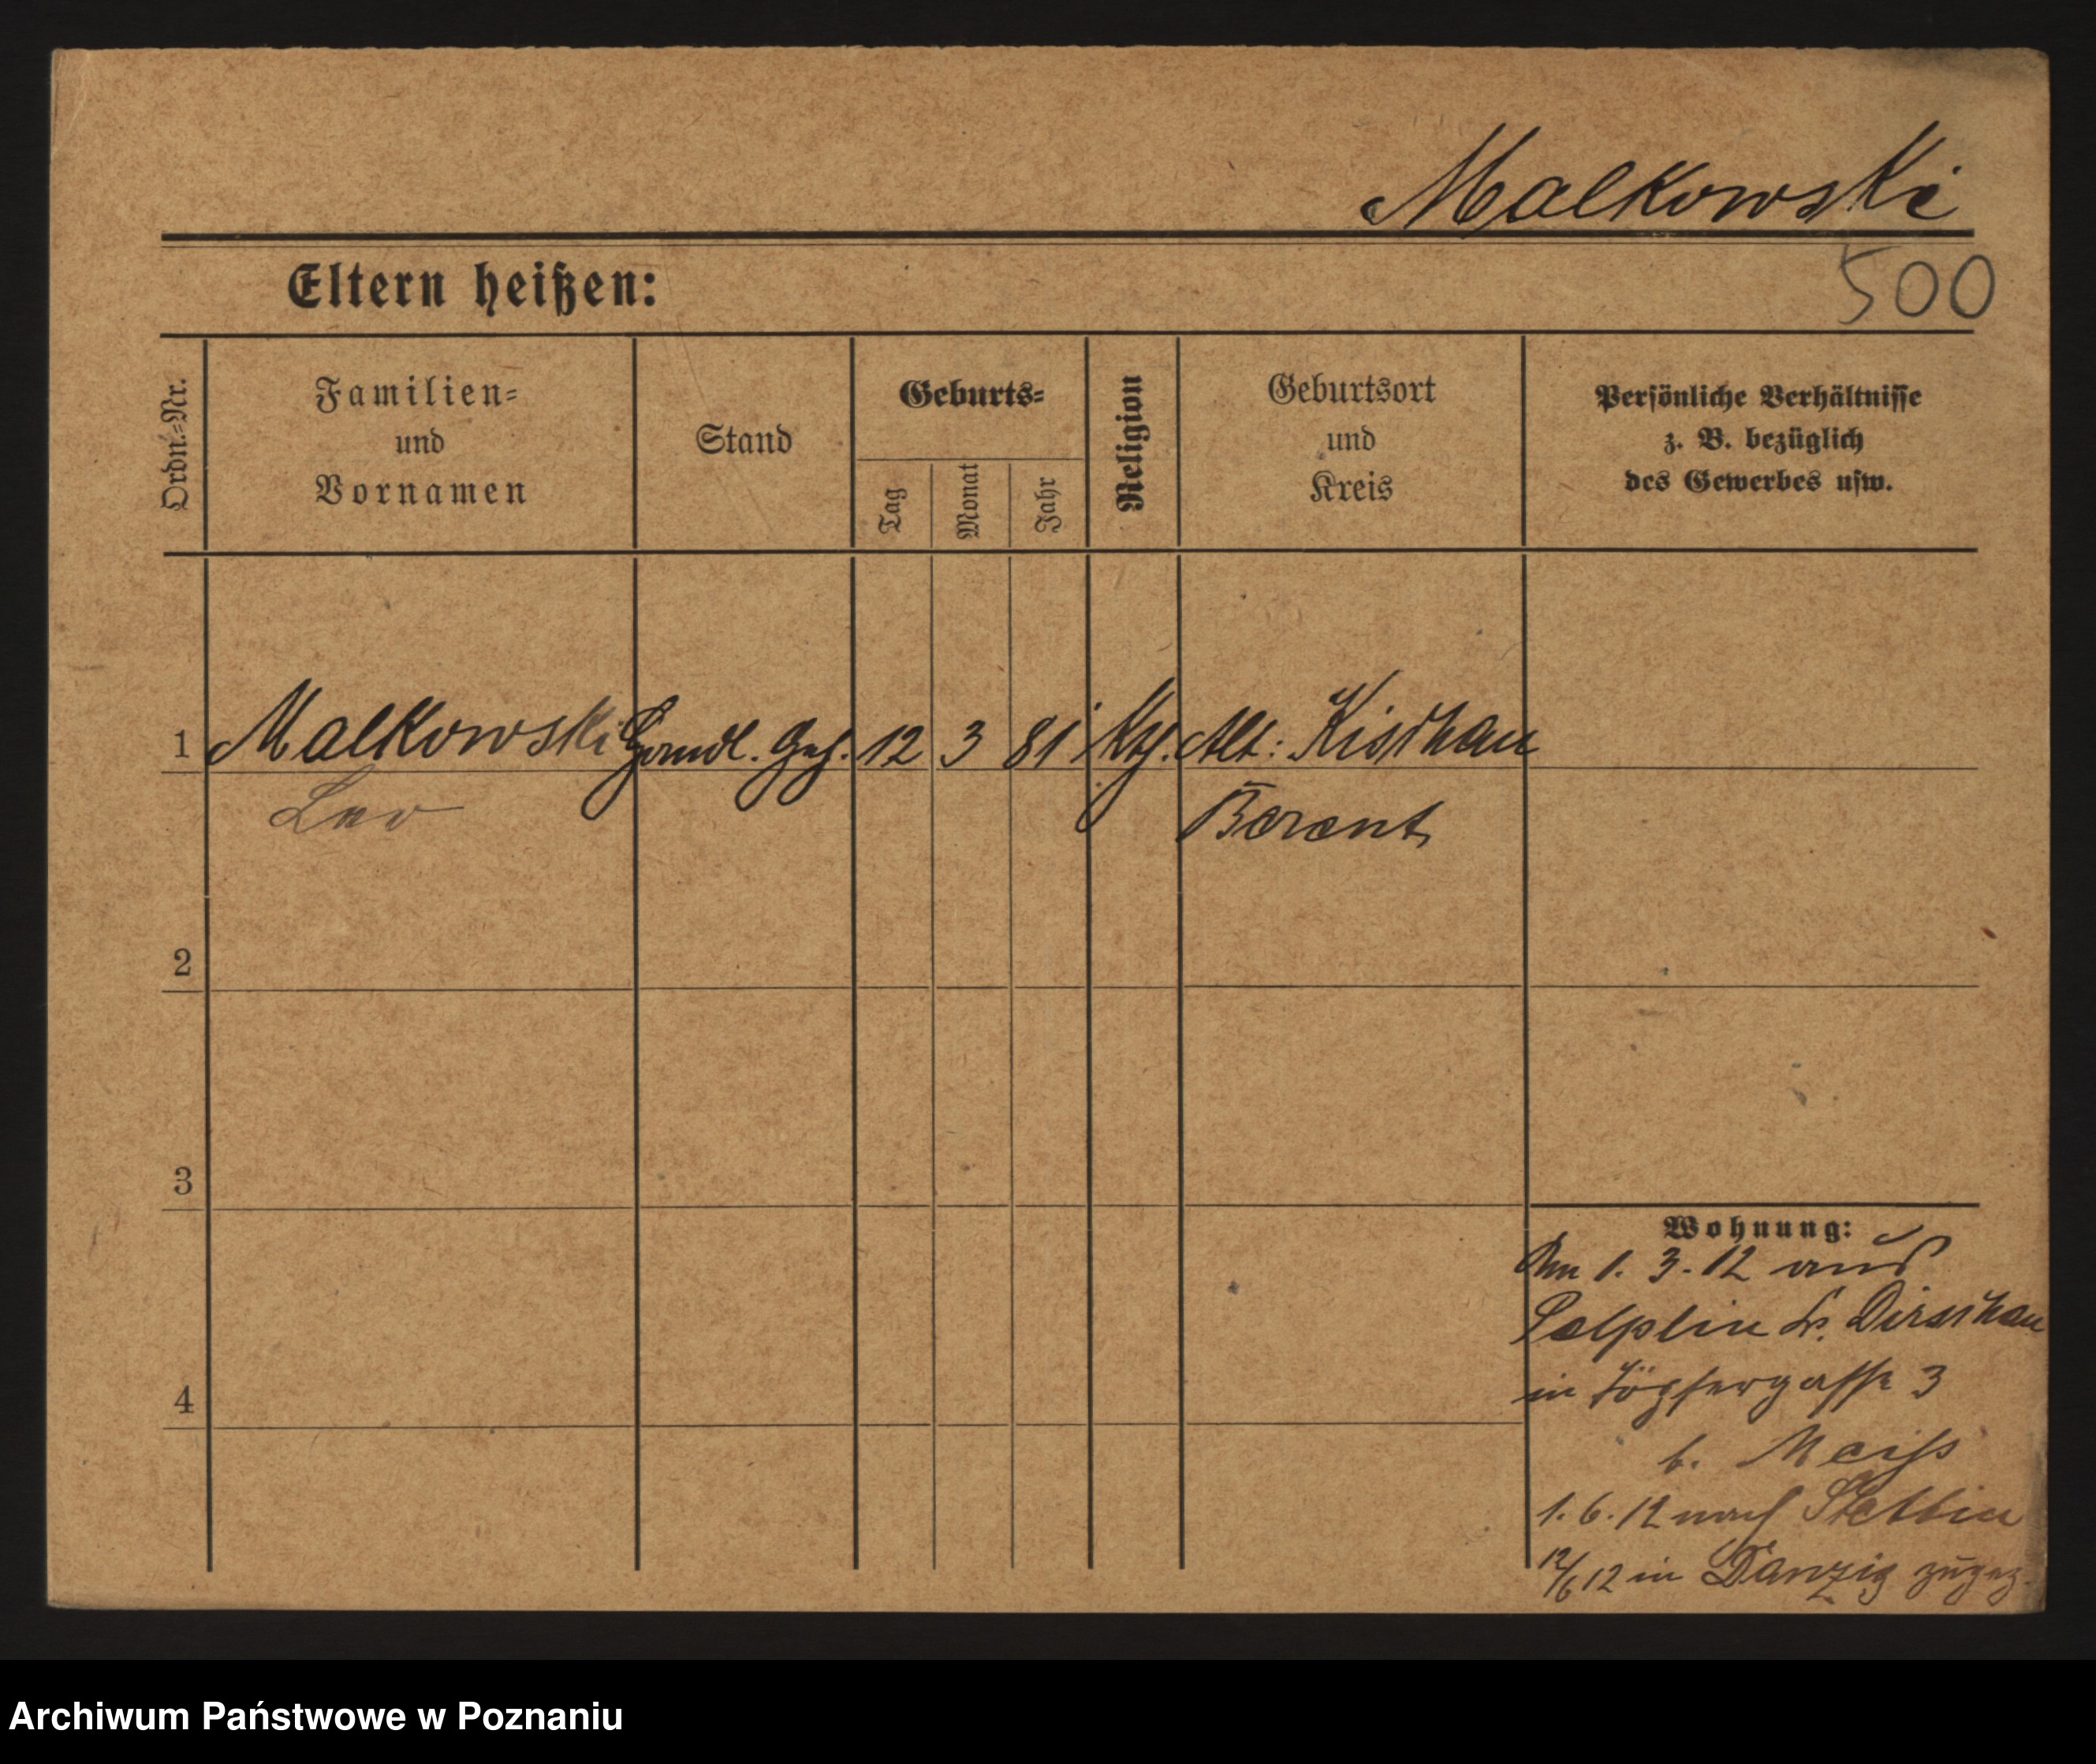 Malkowski
500
Eltern heißen:
Ordn.-Nr.
Familien-
und
Vornamen
Stand
Geburts-
Tag
Monat
Jahr
Religion
Geburtsort
und
Kreis
Persönliche Verhältnisse
z. B. bezüglich
des Gewerbes usw.
1 Malkowski Handl. Geh. 12 3 81 kth. Alt: Kischau
Leo Berent
2
3
4
Wohnung:
Am 1. 3. 12 aus
Pelplin Kr. Dirschau
in Töpfergasse 3
b. Meiss
1. 6. 12 nach Stettin
12/6 12 in Danzig zugez.
Archiwum Państwowe w Poznaniu